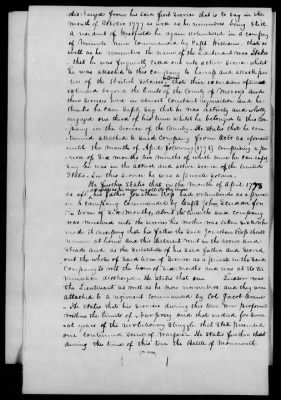 discharged from his said first service that is to say in the
month of October 1777 as well as he remembers being still
a resident of Westfield he again volunteered in a company
of Minute men commanded by Capt
well as he remembers the name of the Lieutenant was
that he was frequently called out into active service whilst
he was attached to this company to harass and attack par
ties of the British soldiers that this
extended beyond the limits of the County of and
their services were in almost constant requisition and he
thinks he can safely say that he was actively and
engaged one third of his time whilst he belonged to this Com
pany in the service of the Country. He States that he con
tinued attached to said Company from Octr as aforesaid
until the month of April following (1778) comprising a pe
riod of Six months two months of which time he can safely
say he was in the actual and active service of the United
States. In this service he was a private soldier.
He further States that in the month of April 1778
his father Jonathan
a company commanded by Capt John Scudder for
the term of six months, about the time the said company
was mustered into the service his mother was taken sick which
made it necessary that his father the said Jonathan should
remain at home and this declarant went in the room and
Stead and as the substitute of his said father and served
out the whole of said term of service as a private in the said
Company to wit the term of Six months and was at its ter
mination discharged. He States that one was
the Lieutenant as well as he now remembers and they were
attached to a regiment commanded by Col Jacob
He States that his service during this term was performed
within the limits of New Jersey and that indeed for sever
al years of the revolutionary struggle that State presented
one continued scene of warfare. He States further that
during the time of this tour the Battle of Monmouth